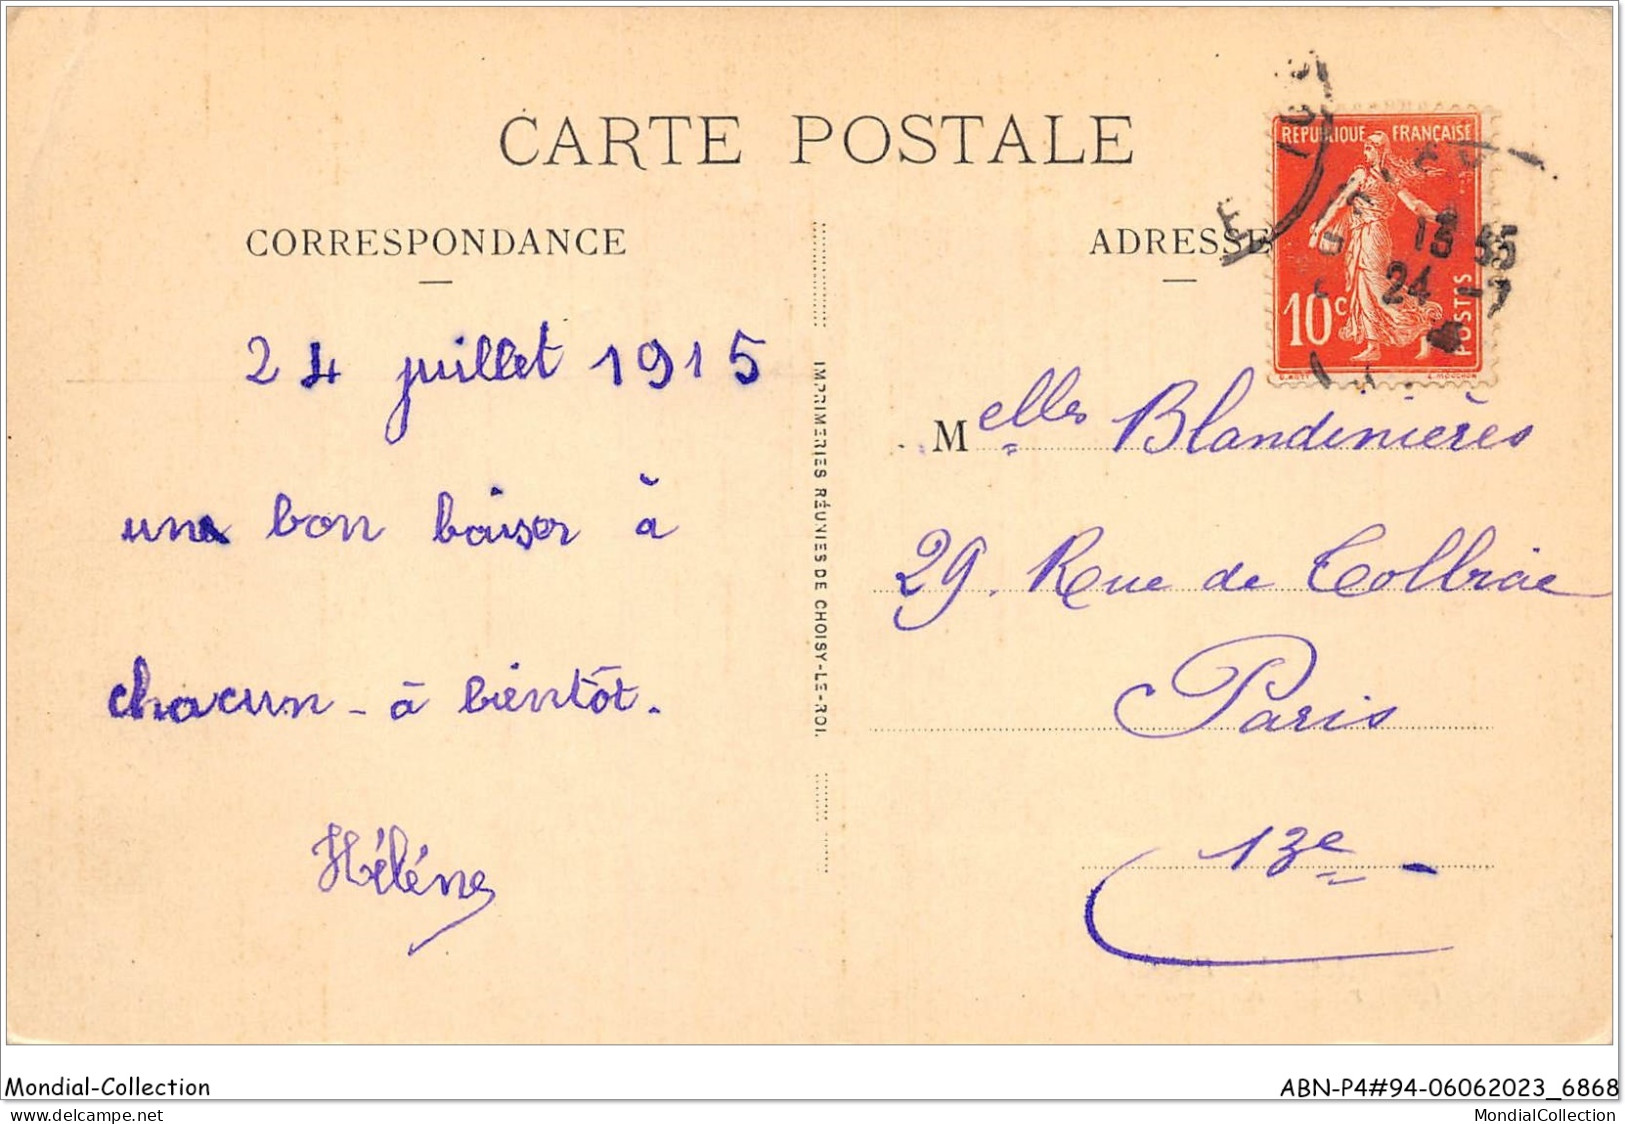 CARTE POSTALE
CORRESPONDANCE
24 juillet 1915
un bon baiser à
chacun - à bientôt.
Hélène
IMPRIMERIES RÉUNIES DE CHOISY-LE-ROI.
ADRESSE
REPUBLIQUE FRANÇAISE
10c
POSTES
13 35
24 -7
Melles Blandinières
29. Rue de Tolbiac
Paris
13e -
Mondial-Collection
ABN-P4#94-06062023_6868
www.delcampe.net
MondialCollection